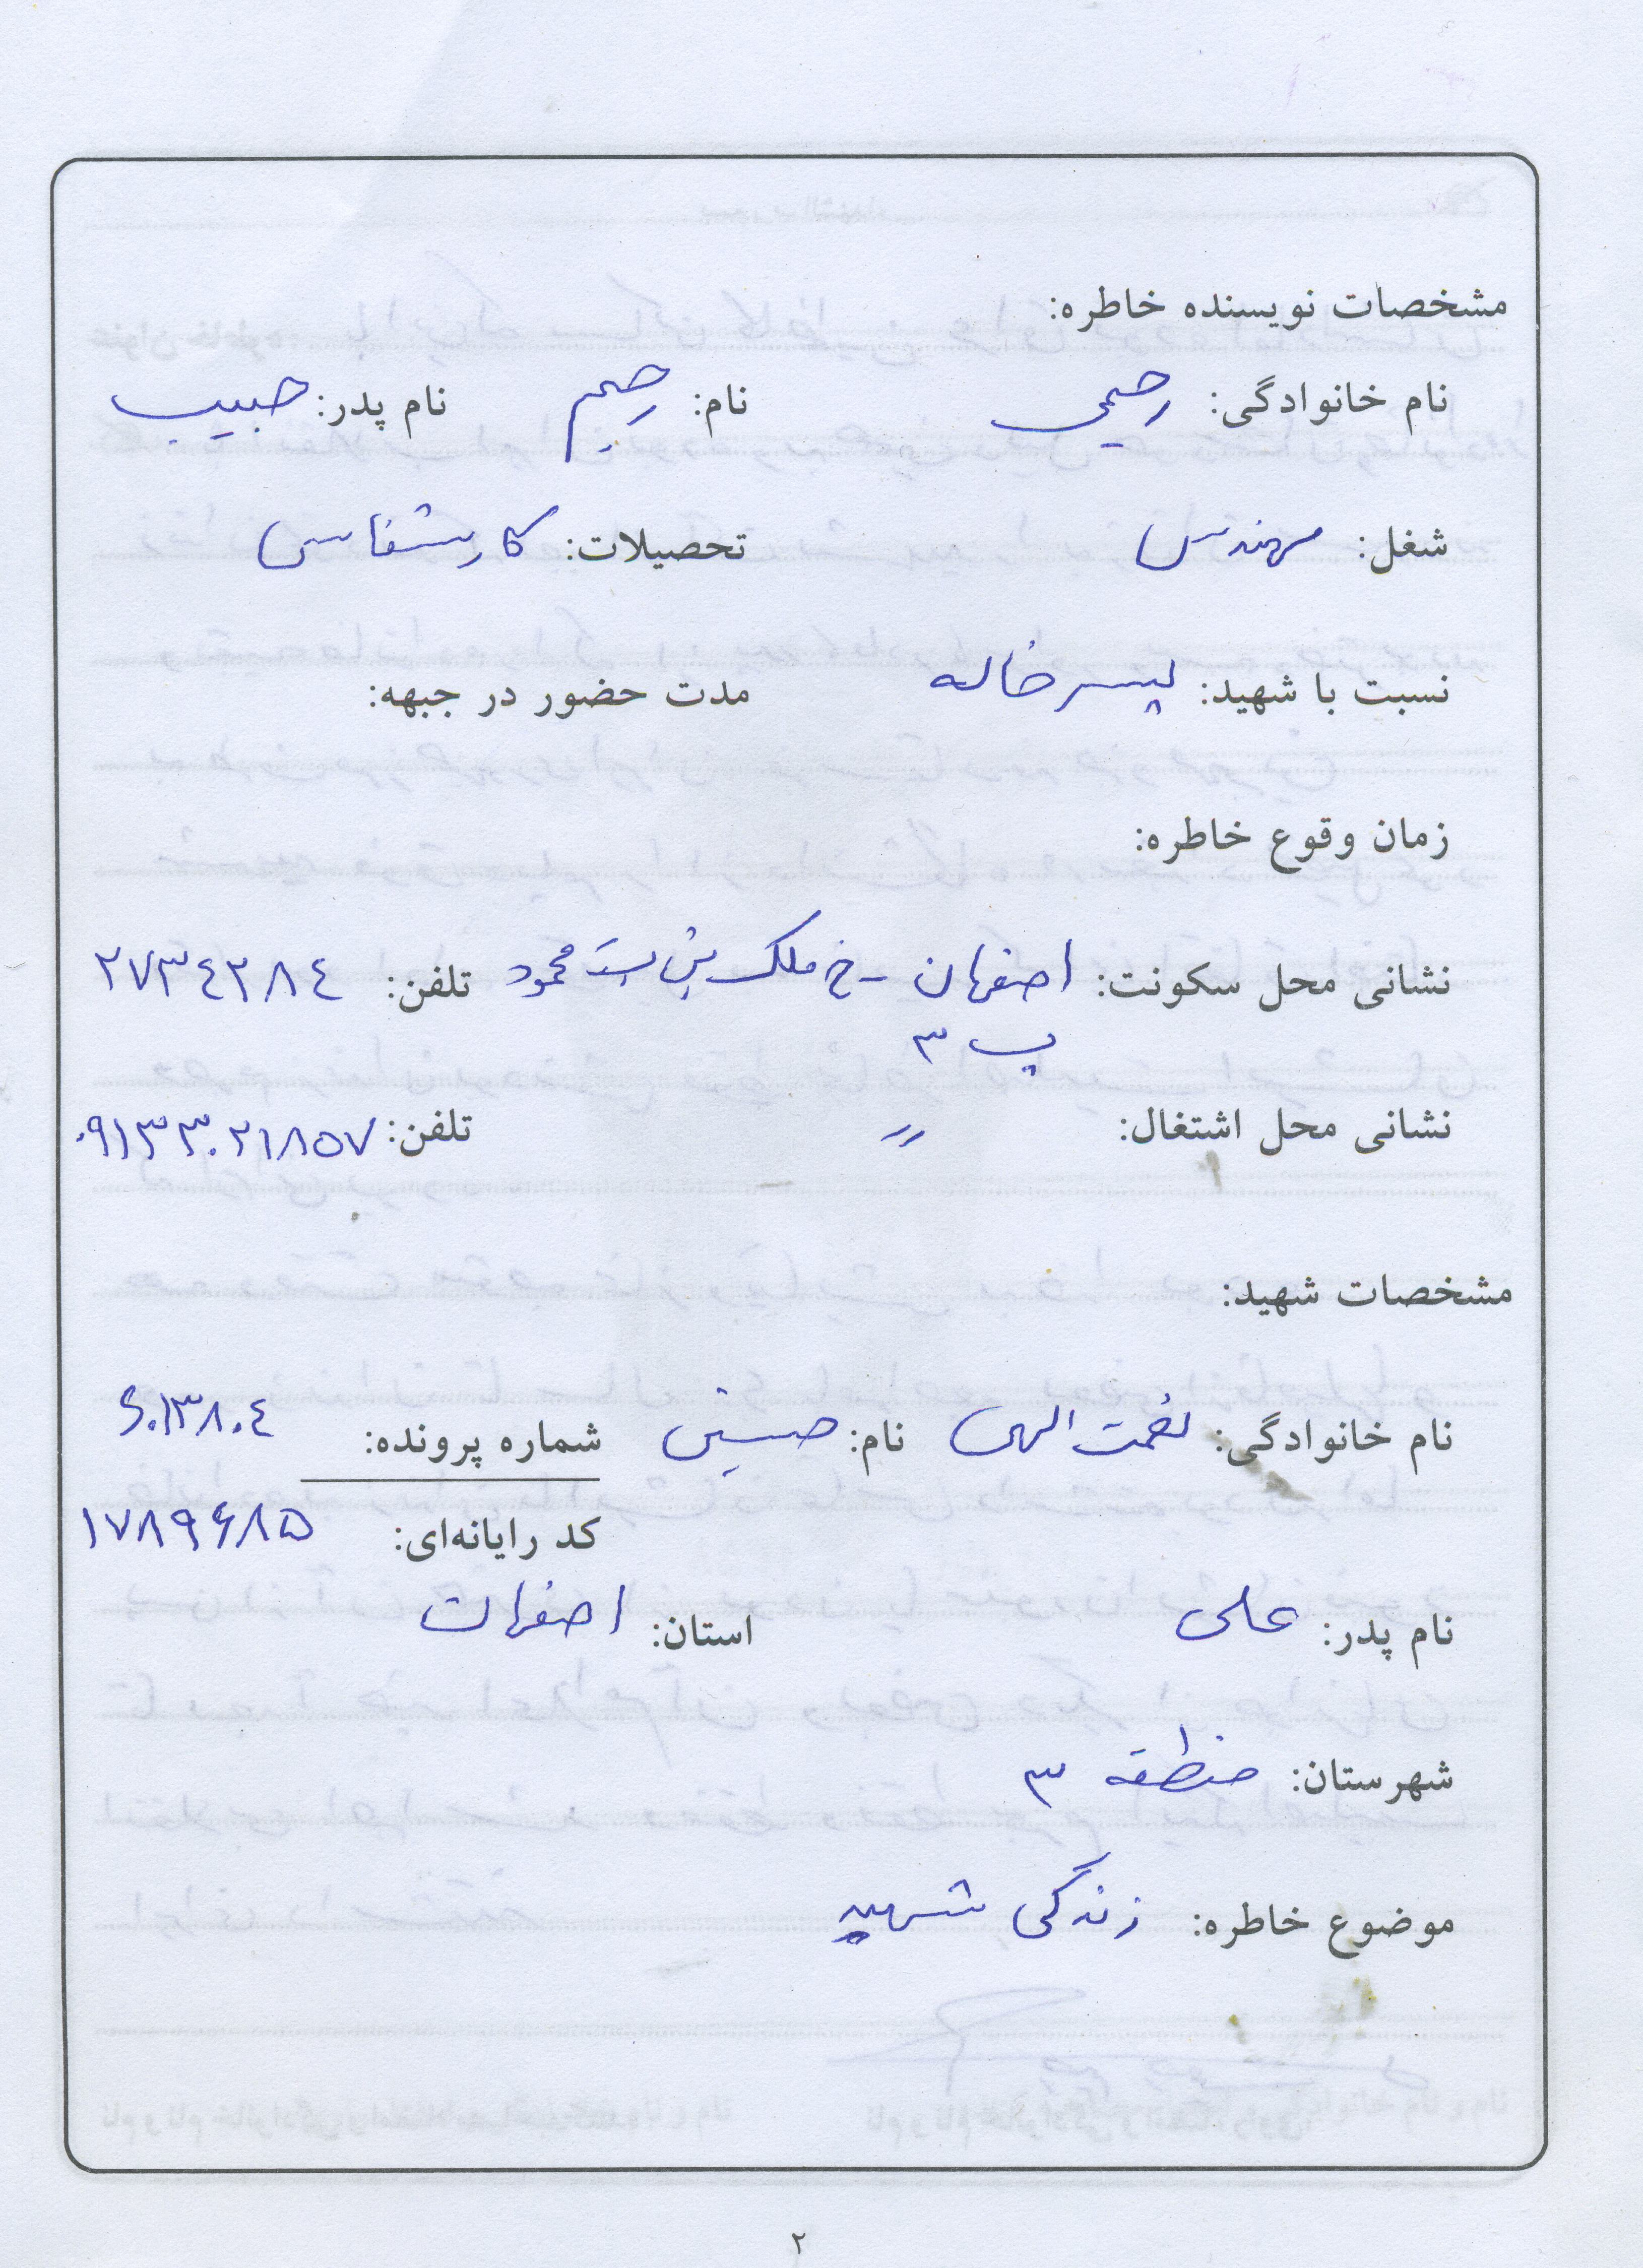 مشخصات نویسنده خاطره:
نام خانوادگی: رحیمی نام: رحیم نام پدر: حبیب
شغل: مهندس تحصیلات: کارشناسی
نسبت با شهید: پسرخاله مدت حضور در جبهه:
زمان وقوع خاطره:
نشانی محل سکونت: اصفهان - خ ملک بن بست محمود تلفن: ۲۷۳۴۲۸۴
پ ۳
نشانی محل اشتغال: " تلفن: ۰۹۱۳۳۰۲۱۸۵۷
مشخصات شهید:
نام خانوادگی: نعمت الهی نام: حسین شماره پرونده: ۶۰۱۳۸۰۴
کد رایانه‌ای: ۱۷۸۹۶۸۵
نام پدر: علی استان: اصفهان
شهرستان: منطقه ۳
موضوع خاطره: زندگی شهید
۲